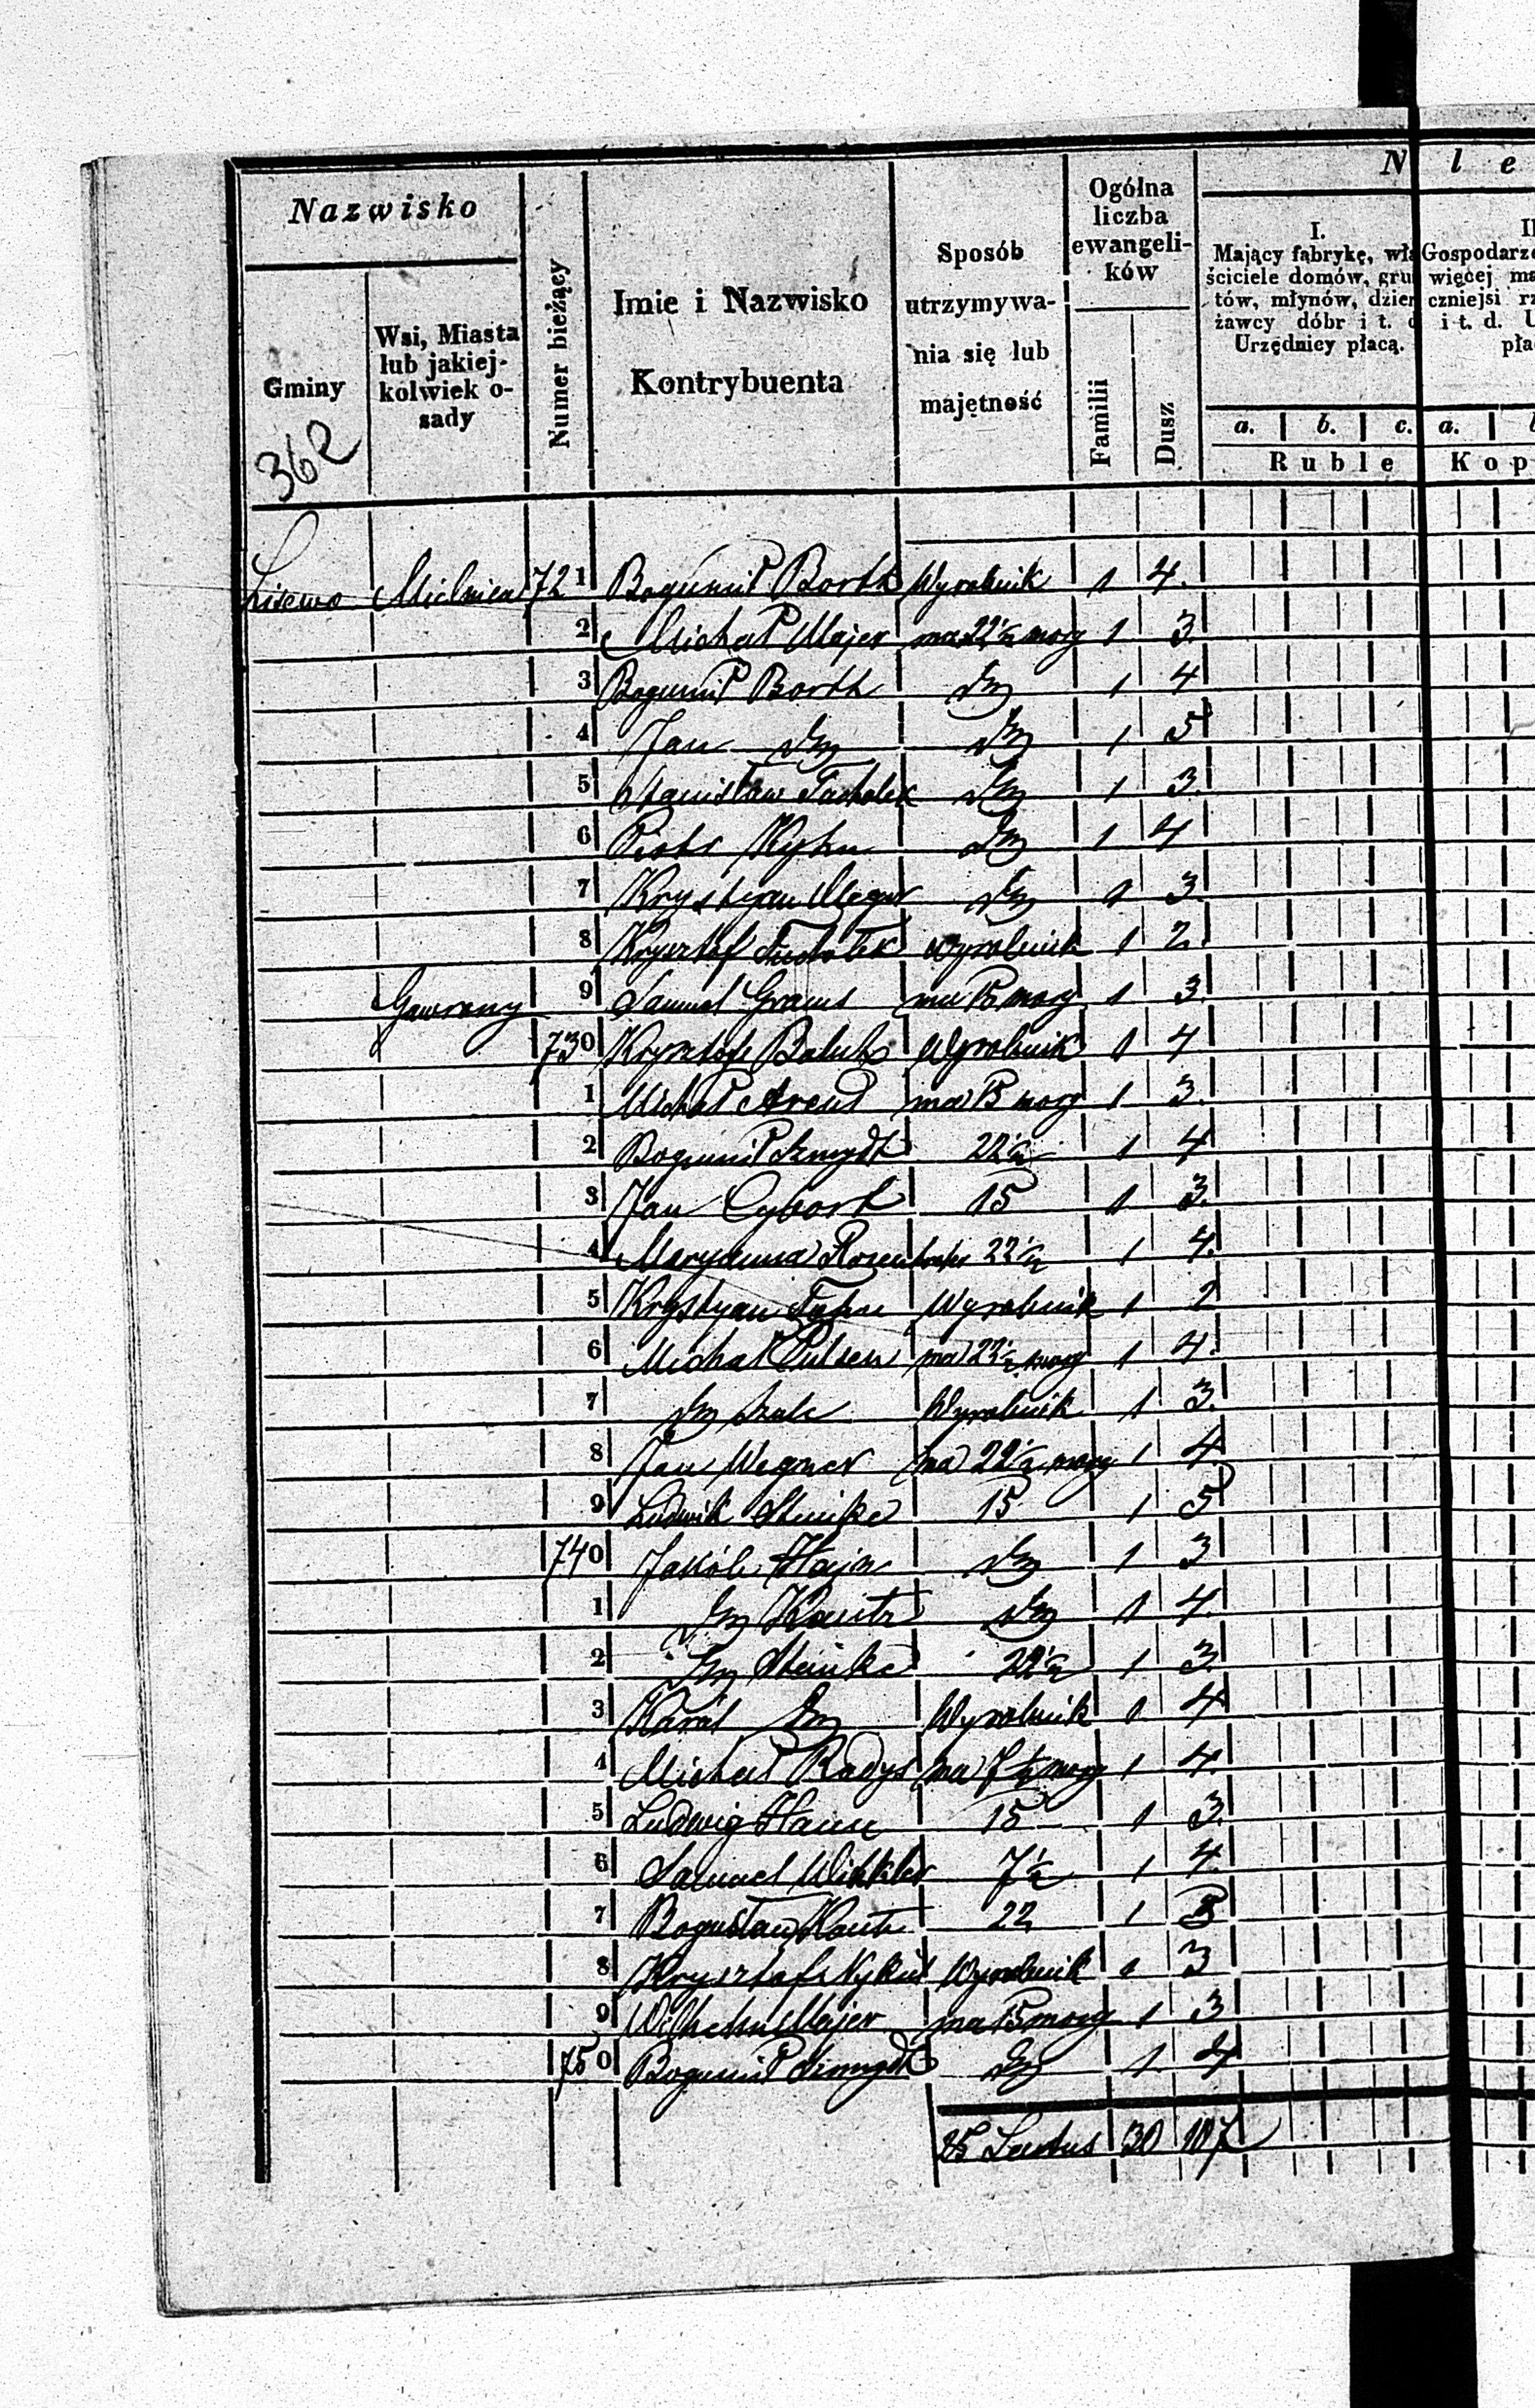 Nazwisko
Gminy
362
Wsi, Miasta
lub jakiej-
kolwiek o-
sady
Numer bieżący
Imie i Nazwisko
Kontrybuenta
Sposób
utrzymywa-
nia się lub
majętność
Ogólna
liczba
ewangeli-
ków
Familii
Dusz
N l e
I.
Mający fąbrykę, wła
ściciele domów, gru
tów, młynów, dzier
żawcy dóbr i t. d
Urzędnicy płacą.
II
Gospodarze
więcej ma
czniejsi rz
i t. d. U
pła
a. b. c. a.
Ruble Kop
Lisewo Mielnica 72 1 Bogumił Borth Wyrobnik 1 4.
2 Michał Majer ma 22½ morg 1 3.
3 Bogumił Borth Dto 1 4
4 Jan Dto Dto 1 5
5 Stanisław Dto 1 3.
6 Piotr Dto 1 4
7 Krystyan Dto 1 3.
8 Krysztof Wyrobnik 1 2.
Gawrony 9 Samuel ma 15 morg 1 3
730 Krysztof Wyrobnik 1 4
1 Michał Arend ma 15 morg 1 3.
2 Bogumił Szmydt 22½ 1 4
3 Jan Cybart 15 1 3.
4 Maryanna 22½ 1 4.
5 Krystyan Wyrobnik 1 2
6 Michał ma 22½ morg 1 4.
7 Dto Szulc Wyrobnik 1 3.
8 Jan Wegner ma 22½ morg 1 4.
9 Ludwik Steinke 15 1 5
740 Jakób Hajn Dto 1 3
1 Dto Kautz Dto 1 4.
2 Dto Steinke 22½ 1 3.
3 Karól Dto Wyrobnik 1 4
4 Michał Radys ma 7½ morg 1 4.
5 Ludwig 15 1 3.
6 Samuel 7½ 1 4
7 Bogusław 22 1 3
8 Krysztof Wyrobnik 1 3
9 Wilhelm Majer ma 15 morg 1 3
750 Bogumił Szmydt Dto 1 4
25 Latus 30 107